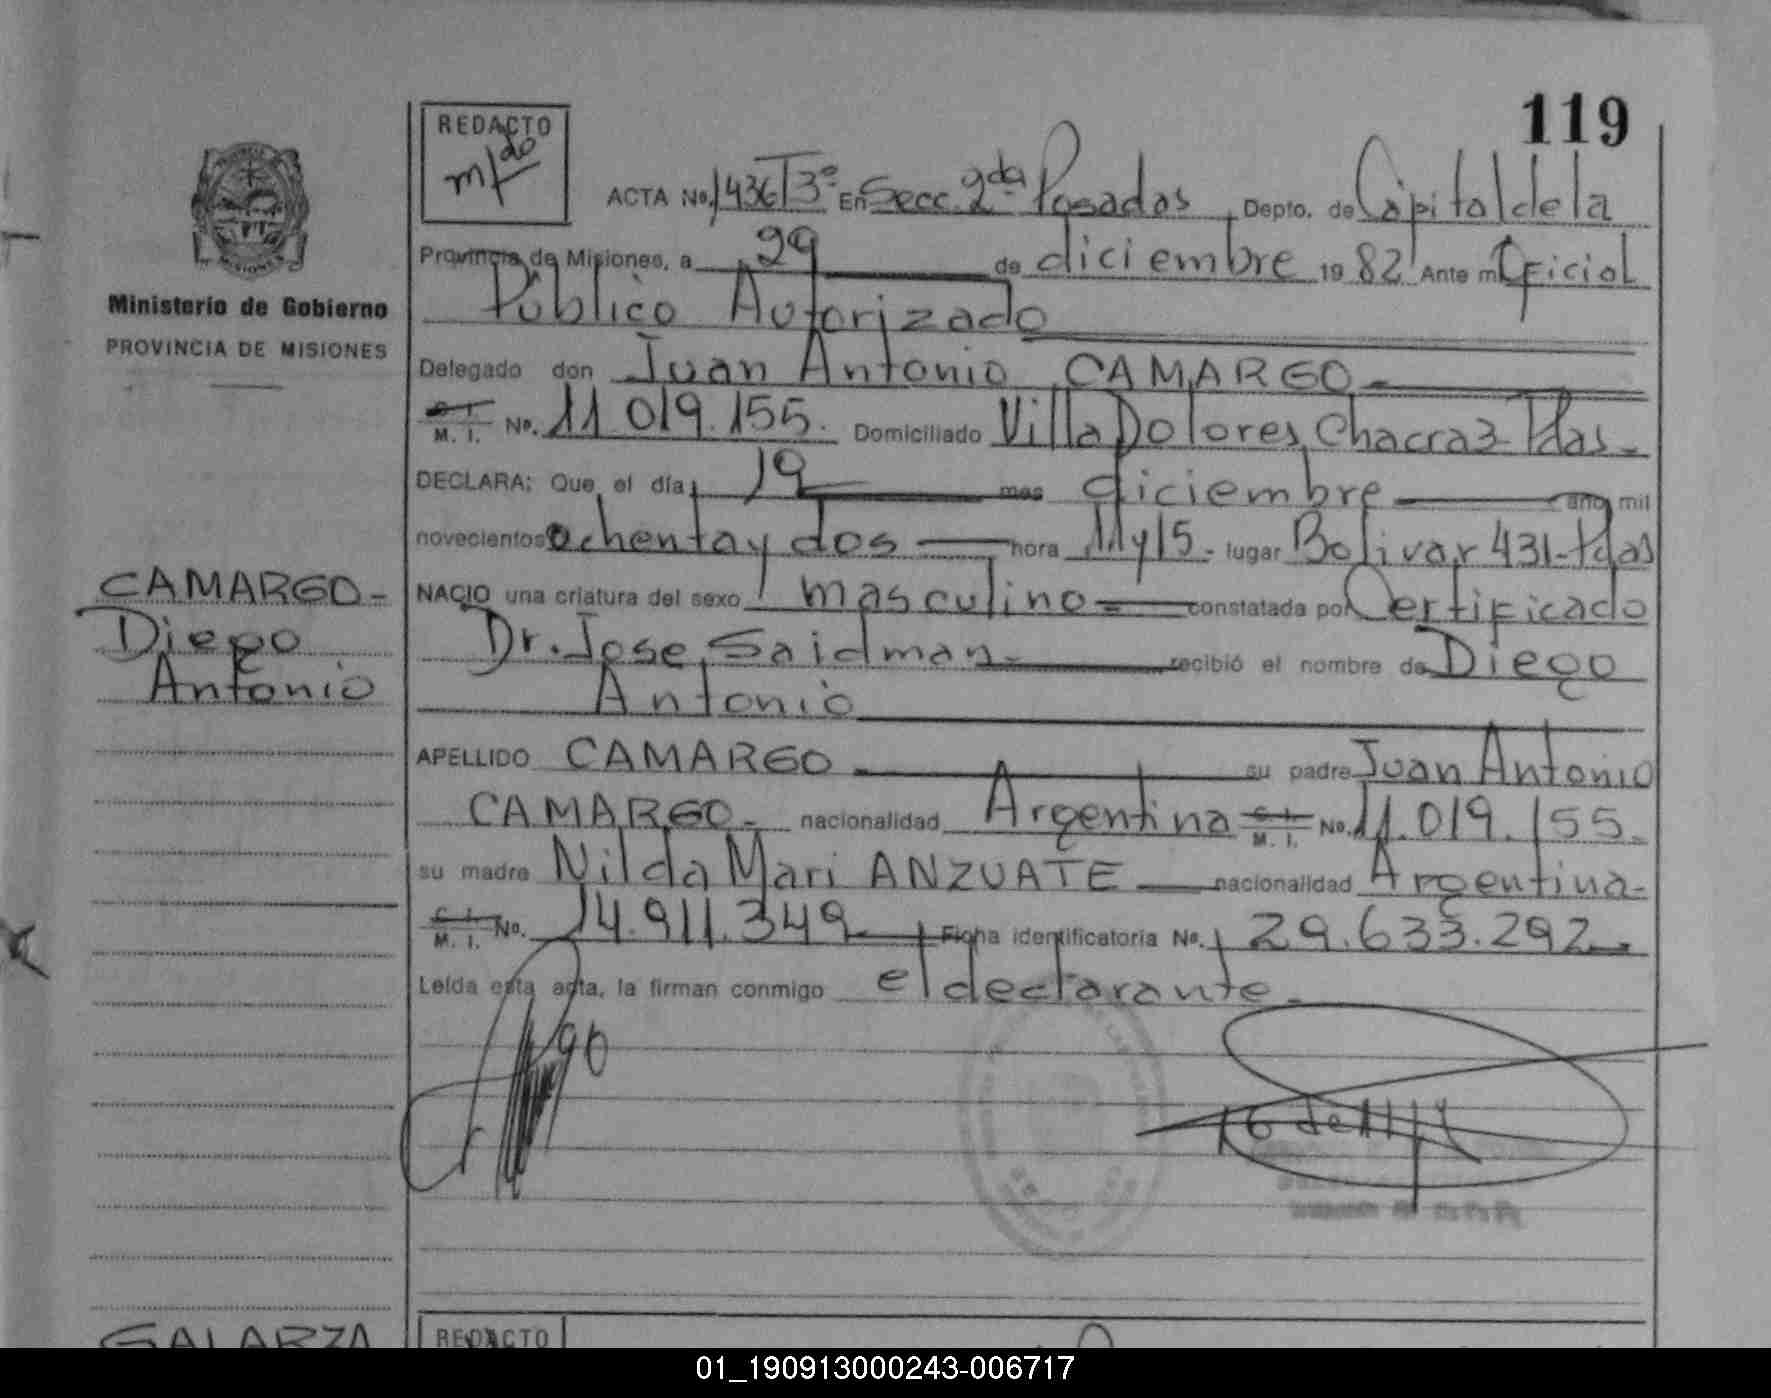 119
REDACTO
ACTA No. 1436 T3º En Secc. 2da Posadas, Depto. de Capital de la
Provincia de Misiones, a 29 de diciembre 1982 Ante mi Oficial
Público Autorizado
Ministerio de Gobierno
PROVINCIA DE MISIONES
Delegado don Juan Antonio CAMARGO
C. I. M. I. No. 11.019.155. Domiciliado Villa Dolores, Chacra 3 Pdas
DECLARA: Que el día 19 mes diciembre año mil
novecientos ochenta y dos hora 11 y 15 lugar Bolivar 431-Pdas
CAMARGO-
Diego
Antonio
NACIO una criatura del sexo masculino constatada por Certificado
Dr. Jose Saidman recibió el nombre de Diego
Antonio
APELLIDO CAMARGO su padre Juan Antonio
CAMARGO nacionalidad Argentina C. I. M. I. No. 11.019.155.
su madre Nilda Mari ANZUATE nacionalidad Argentina
C. I. M. I. No. 14.911.349 Ficha identificatoria No. 29.633.292
Leída esta acta, la firman conmigo el declarante
GALARZA
REDACTO
01_190913000243-006717